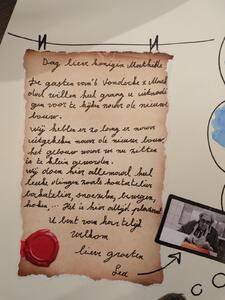 Dag lieve koningin Mathilde
De gasten van 't Vonderke x Mark
dod willen heel graag u uitnodi
gen voor te kijken naar de nieuwe
bouw.
Wij hebben er zo lang er naar
uitgekeken naar de nieuwe bouw,
het gebouw waar we nu zitten
is te klein geworden.
Wij doen hier allemaal heel
leuke dingen zoals
snoezelen, bewegen,
koken, ... Het is hier altijd plezant.
U bent van harte
welkom
lieve groeten
Lea